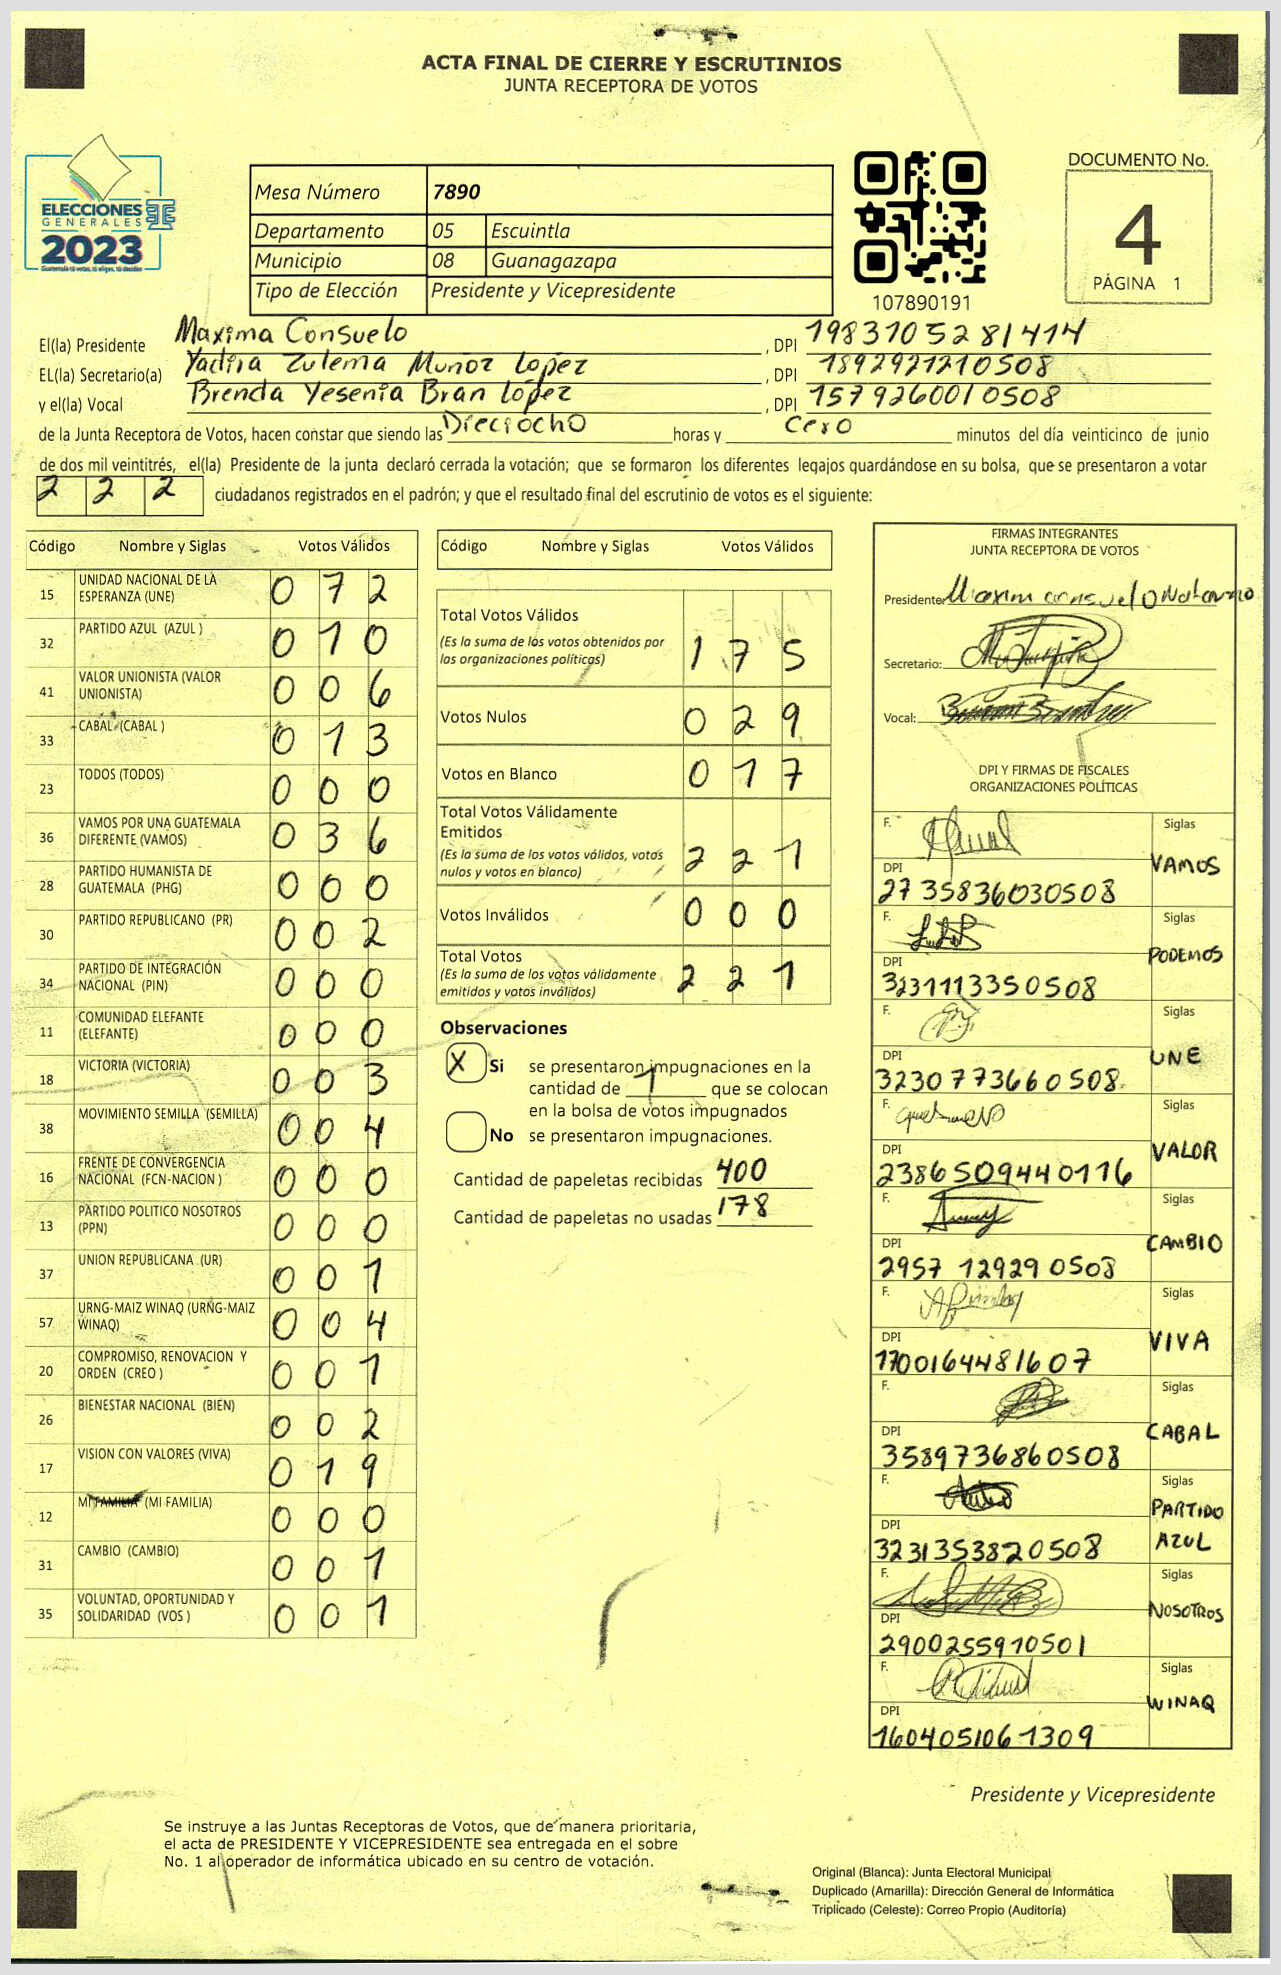 ACTA FINAL DE CIERRE Y ESCRUTINIOS
JUNTA RECEPTORA DE VOTOS
ELECCIONES
GENERALES
2023
Guatemala tú votas, tú eliges, tú decides
Mesa Número 7890
Departamento 05 Escuintla
Municipio 08 Guanagazapa
Tipo de Elección Presidente y Vicepresidente
107890191
DOCUMENTO No.
4
PÁGINA 1
El(la) Presidente Maxima Consuelo , DPI 1983105281414
EL(la) Secretario(a) Yadira Zulema Muñoz Lopez , DPI 1892921210508
y el(la) Vocal Brenda Yesenia Bran López , DPI 1579260010508
de la Junta Receptora de Votos, hacen constar que siendo las Dieciocho horas y cero minutos del día veinticinco de junio
de dos mil veintitrés, el(la) Presidente de la junta declaró cerrada la votación; que se formaron los diferentes legajos guardándose en su bolsa, que se presentaron a votar
2 2 2 ciudadanos registrados en el padrón; y que el resultado final del escrutinio de votos es el siguiente:
Código Nombre y Siglas Votos Válidos
15 UNIDAD NACIONAL DE LA ESPERANZA (UNE) 0 7 2
32 PARTIDO AZUL (AZUL ) 0 1 0
41 VALOR UNIONISTA (VALOR UNIONISTA) 0 0 6
33 CABAL (CABAL ) 0 1 3
23 TODOS (TODOS) 0 0 0
36 VAMOS POR UNA GUATEMALA DIFERENTE (VAMOS) 0 3 6
28 PARTIDO HUMANISTA DE GUATEMALA (PHG) 0 0 0
30 PARTIDO REPUBLICANO (PR) 0 0 2
34 PARTIDO DE INTEGRACIÓN NACIONAL (PIN) 0 0 0
11 COMUNIDAD ELEFANTE (ELEFANTE) 0 0 0
18 VICTORIA (VICTORIA) 0 0 3
38 MOVIMIENTO SEMILLA (SEMILLA) 0 0 4
16 FRENTE DE CONVERGENCIA NACIONAL (FCN-NACION ) 0 0 0
13 PARTIDO POLITICO NOSOTROS (PPN) 0 0 0
37 UNION REPUBLICANA (UR) 0 0 1
57 URNG-MAIZ WINAQ (URNG-MAIZ WINAQ) 0 0 4
20 COMPROMISO, RENOVACION Y ORDEN (CREO ) 0 0 1
26 BIENESTAR NACIONAL (BIEN) 0 0 2
17 VISION CON VALORES (VIVA) 0 1 9
12 MI FAMILIA (MI FAMILIA) 0 0 0
31 CAMBIO (CAMBIO) 0 0 1
35 VOLUNTAD, OPORTUNIDAD Y SOLIDARIDAD (VOS ) 0 0 1
Código Nombre y Siglas Votos Válidos
Total Votos Válidos
(Es la suma de los votos obtenidos por
las organizaciones políticas) 1 7 5
Votos Nulos 0 2 9
Votos en Blanco 0 1 7
Total Votos Válidamente
Emitidos
(Es la suma de los votos válidos, votos
nulos y votos en blanco) 2 2 1
Votos Inválidos 0 0 0
Total Votos
(Es la suma de los votos válidamente
emitidos y votos inválidos) 2 2 1
Observaciones
X Si se presentaron impugnaciones en la
cantidad de 1 que se colocan
en la bolsa de votos impugnados
No se presentaron impugnaciones.
Cantidad de papeletas recibidas 400
Cantidad de papeletas no usadas 178
FIRMAS INTEGRANTES
JUNTA RECEPTORA DE VOTOS
Presidente:
Secretario:
Vocal:
DPI Y FIRMAS DE FISCALES
ORGANIZACIONES POLÍTICAS
F. Siglas VAMOS
DPI
27 35836030508
F. Siglas PODEMOS
DPI
3231113350508
F. Siglas UNE
DPI
3230773660508
F. Siglas VALOR
DPI
2386509440116
F. Siglas CAMBIO
DPI
2957 12929 0508
F. Siglas VIVA
DPI
1700164481607
F. Siglas CABAL
DPI
3589736860508
F. Siglas PARTIDO AZUL
DPI
3231353820508
F. Siglas NOSOTROS
DPI
2900255910501
F. Siglas WINAQ
DPI
1604051061309
Presidente y Vicepresidente
Se instruye a las Juntas Receptoras de Votos, que de manera prioritaria,
el acta de PRESIDENTE Y VICEPRESIDENTE sea entregada en el sobre
No. 1 al operador de informática ubicado en su centro de votación.
Original (Blanca): Junta Electoral Municipal
Duplicado (Amarilla): Dirección General de Informática
Triplicado (Celeste): Correo Propio (Auditoría)